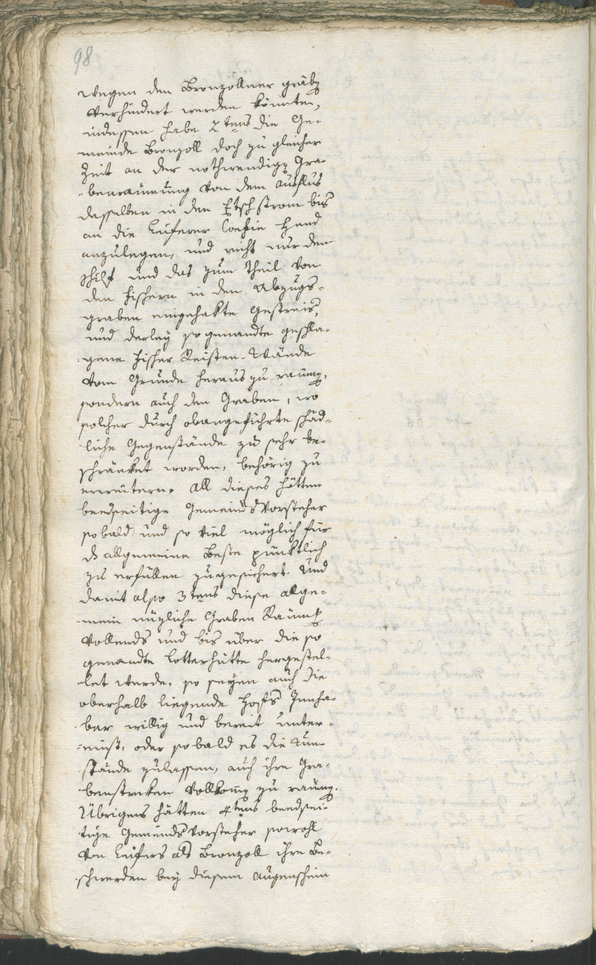 98
wegen den Bronzollner gräbn
verhindert werden könnten,
indessen habe 2tens die Ge-
meinde Bronzoll doch zu gleicher
Zeit an der nothwendign Gra-
benraümung von dem Ausfluß
desselben in den Etschstrom bis
an die Leiferer Confin Hand
anzulegen, und nicht nur den
Schilf und das zum Theil von
den Fischern in den Abzugs-
graben eingehakte Gestreis,
und derley so genandte geschla-
gene Fischer Reisten-Wände
vom Grunde heraus zu raümn,
sondern auch den Graben, wo
solcher durch obangeführte schäd-
liche Gegenstände zu sehr be-
schränket worden, behörig zu
erweitern. All dieses hätten
beedseitige Gemeinds Vorsteher
sobald und so viel möglich für
ds allgemeine Beste pünktlich
zu erfüllen zugesichert. Und
damit also 3tens diese allge-
mein nüzliche Graben Raümng
vollends und bis über die so
genandte Lotterhütte hergestel-
let werde, so seyen auch die
oberhalb liegende Hofs Innha-
ber willig und bereit unter-
einst, oder sobald es die Um-
stände zulassen, auch ihre Gra-
benstreken vollkomn zu raümn.
Übrigens hätten 4tens beedsei-
tige Gemeinds Vorsteher sowohl
von Leifers als Bronzoll ihre Be-
schwerden bey diesem Augenschein